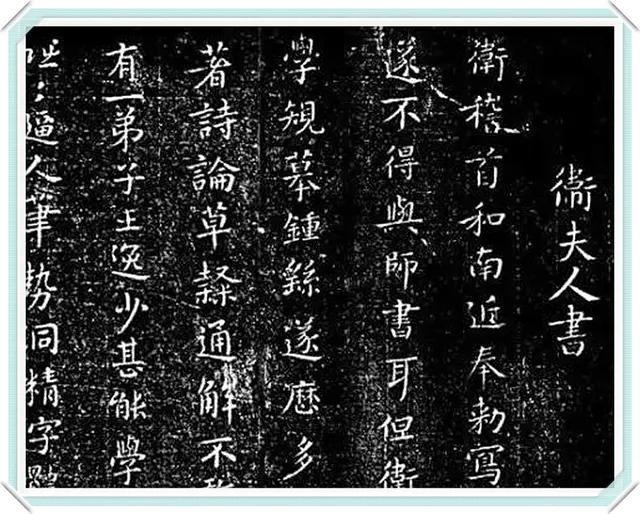 衞夫人書
衛稽首和南近奉勅寫
遂不得與師書耳但衛
學規摹鍾繇遂歷多
著詩論草隸通解不
有一弟子王逸少甚能學
咄〻逼人筆勢洞精字